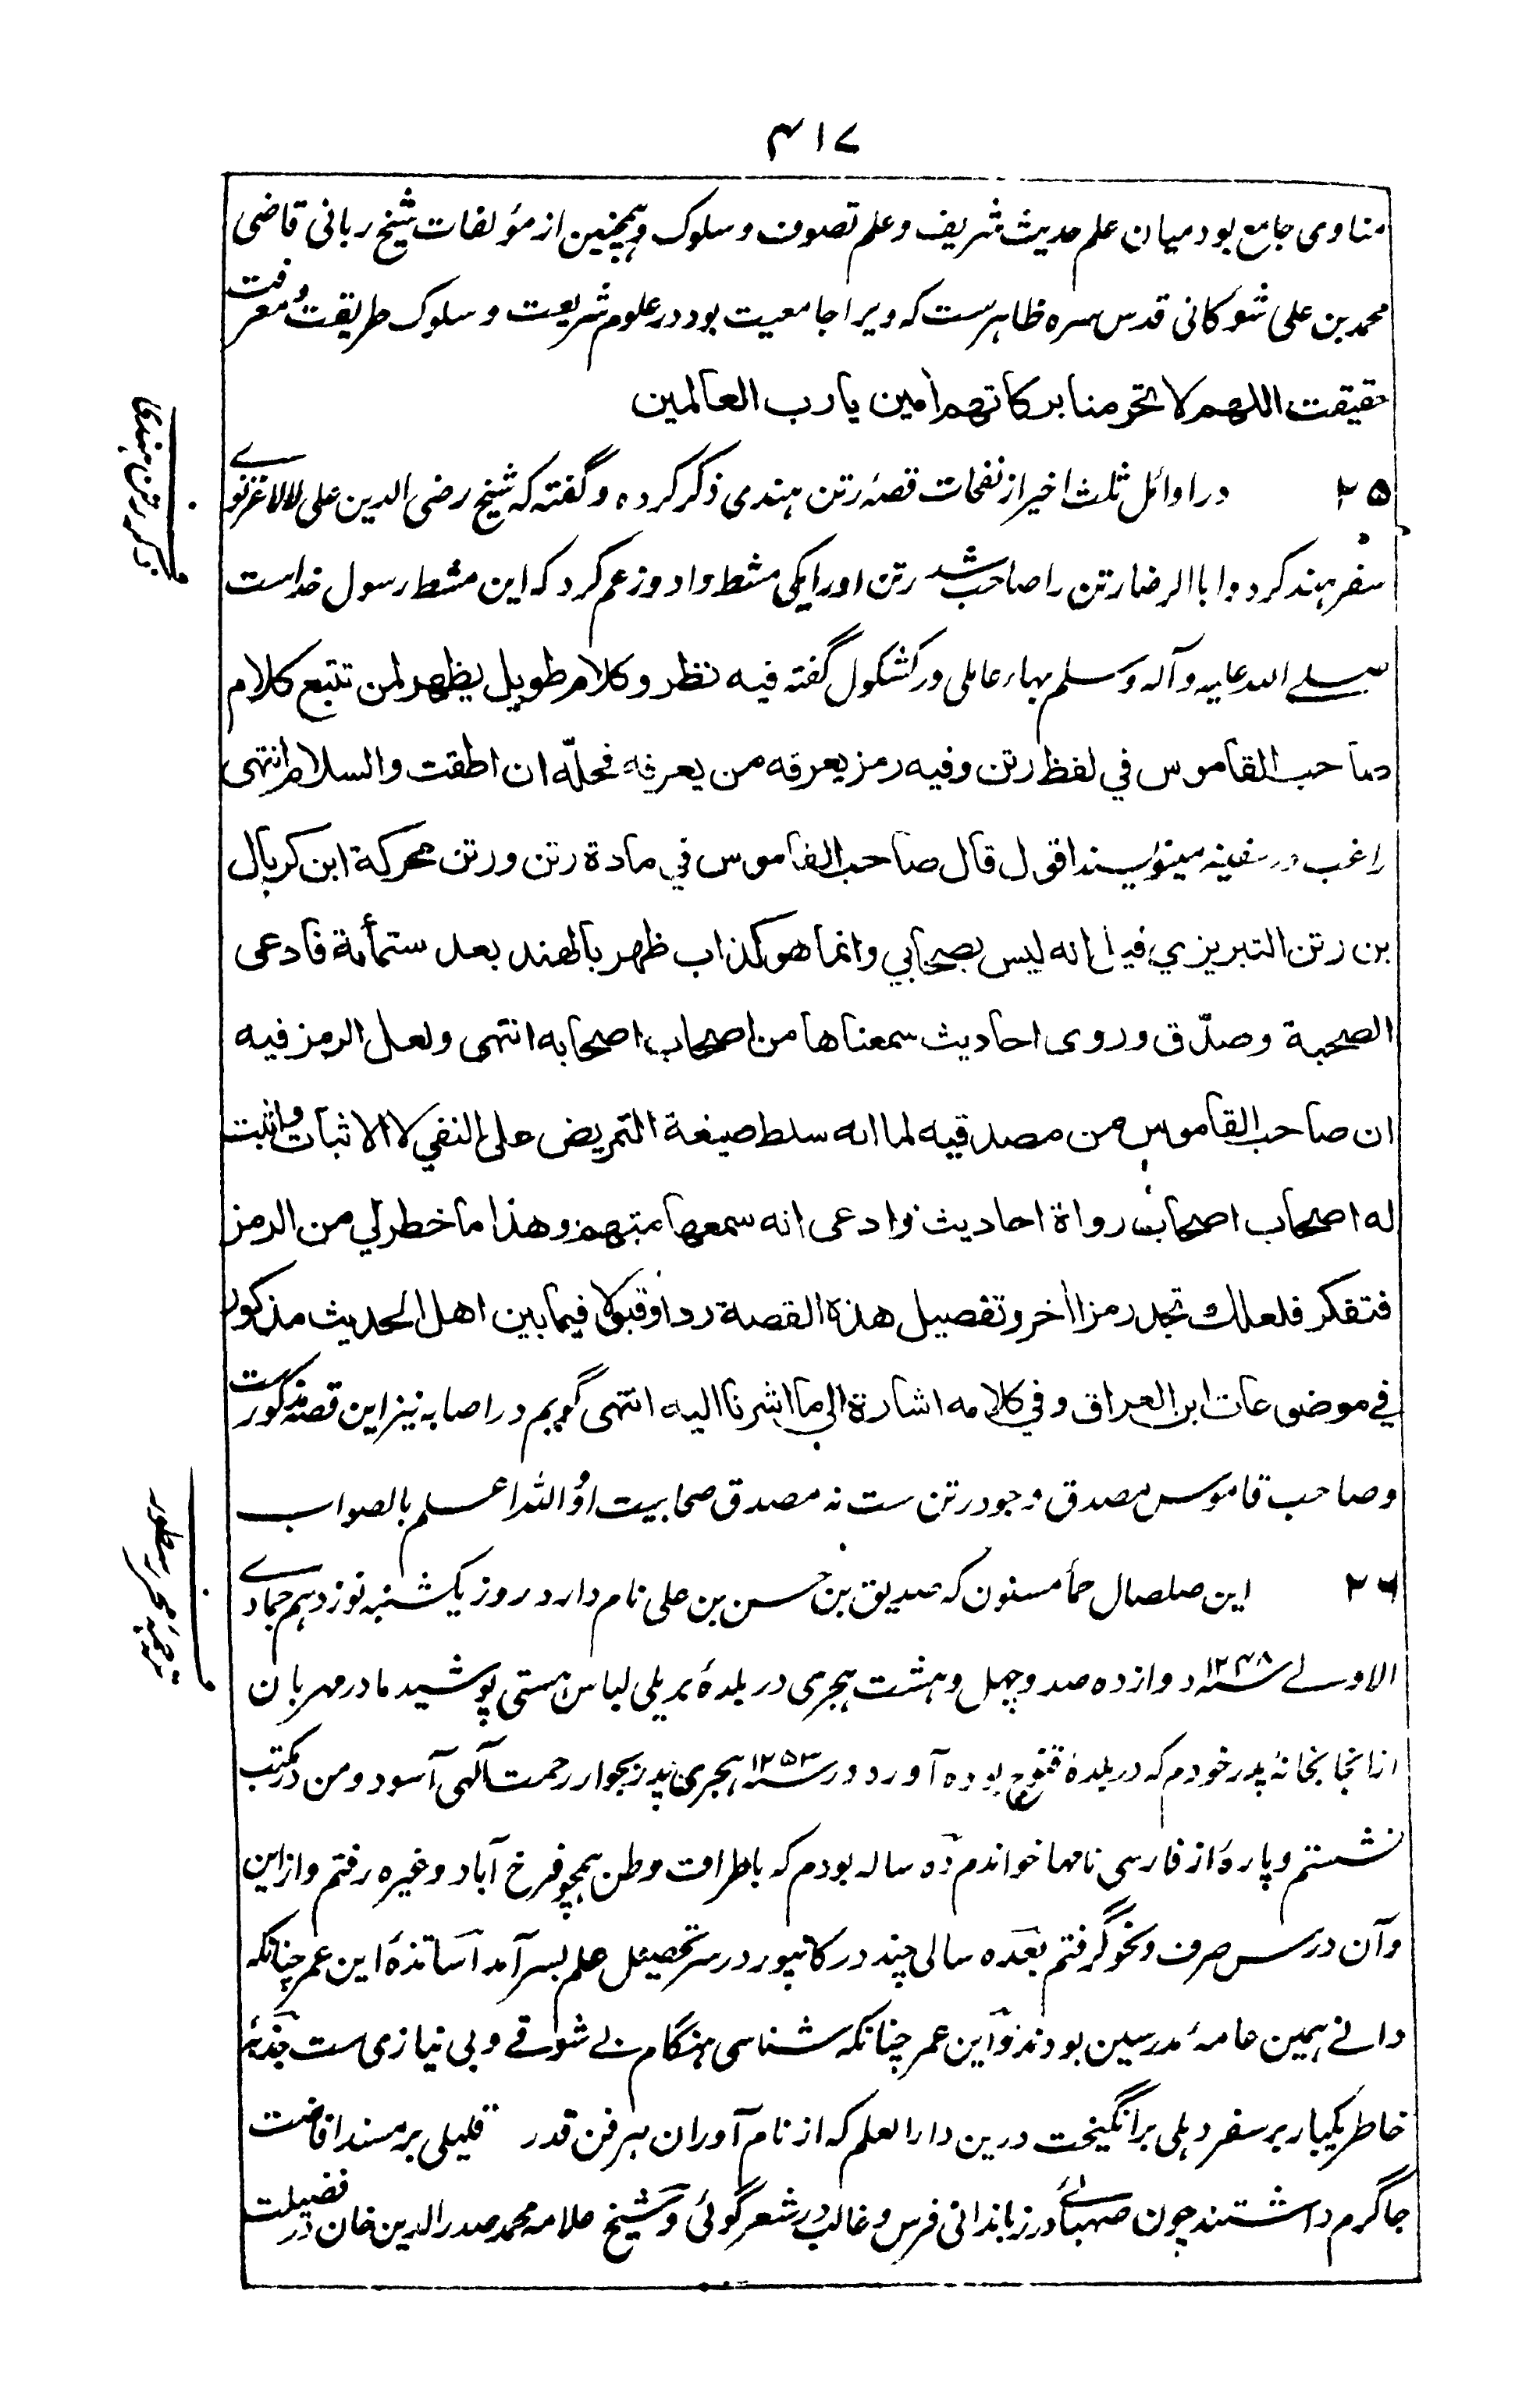 ۴۱۷
مناوی جامع بود میان علم حدیث شریف و علم تصوف و سلوک و همچنین از مؤلفات شیخ ربانی قاضی
محمد بن علی شوکانی قدس سره ظاهرست که ویرا جامعیت بود در علوم شریعت و سلوک طریقت و معرفت
حقیقت اللهم لا تحرمنا برکاتهم آمین یا رب العالمین
ذکر رتن هندی
۲۵ در اوائل ثلث اخیر از نفحات قصهٔ رتن هندی ذکر کرده و گفته که شیخ رضی الدین علی لالا غزنوے
سفر هند کرد و ابا الرضا رتن را صاحب شد رتن اورا یکی مشط داد و زعم کرد که این مشط رسول خداست
صلے الله علیه و آله و سلم بهاء عاملی در کشکول گفته فیه نظر و کلام طویل یظهر لمن تتبع کلام
صاحب القاموس في لفظ رتن وفيه رمز يعرفه من يعرفه فحلّه ان اطقت والسلام انتهى
راغب در سفینه مینویسد اقول قال صاحب القاموس في مادة رتن ورتن محركة ابن كربال
بن رتن التبريزي قيل انه ليس بصحابي وانما هو كذاب ظهر بالهند بعد ستمأئة فادعى
الصحبة وصدّق وروى احاديث سمعناها من اصحاب اصحابه انتهى ولعل الرمز فيه
ان صاحب القاموس من مصدقيه لما انه سلط صيغة التمريض على النفي لا الاثبات واثبت
له اصحاب اصحاب رواة احاديث وادعى انه سمعها منهم وهذا ما خطر لي من الرمز
فتفكر فلعلك تجد رمزا أخر وتفصيل هذه القصة ردا وقبولا فيما بين اهل الحديث مذكور
في موضوعات ابن العراق وفي كلامه اشارة الى ما اشرنا اليه انتهى گویم در اصابه نیز این قصه مذکورست
و صاحب قاموس مصدق وجود رتن ست نه مصدق صحابیت او والله اعلم بالصواب
ترجمهٔ محرر سطور
۲۶ این صلصال حمأ مسنون که صدیق بن حسن بن علی نام دارد روز یکشنبه نوزدهم جمادے
الاولے سنه ۱۲۴۸ دوازده صد و چهل و هشت هجری در بلدهٔ بریلی لباس هستی پوشید مادر مهربان
ازانجا بخانهٔ پدر خودم که در بلدهٔ قنوج بوده آورد و در سنه ۱۲۵۳ هجری پدر بجوار رحمت آلهی آسود و من در مکتب
نشستم و پارهٔ از فارسی نامها خواندم ده ساله بودم که باطراف وطن همچو فرخ آباد و غیره رفتم و ازین
و آن درس صرف و نحو گرفتم بعده سالی چند در کانپور در سر تحصیل علم بسر آمد اساتذهٔ این عمر چنانکه
دانے همین عامهٔ مدرسین بودند و این عمر چنانکه شناسی هنگام بے شوقے و بی نیازی ست جذبهٔ
خاطر یکبار بر سفر دهلی برانگیخت درین دار العلم که از نام آوران هر فن قدر قلیلی بر مسند افاضت
جا گرم داشتند چون صهبائے در زباندانی فرس و غالب در شعر گوئی و شیخ علامه محمد صدر الدین خان در فضیلت